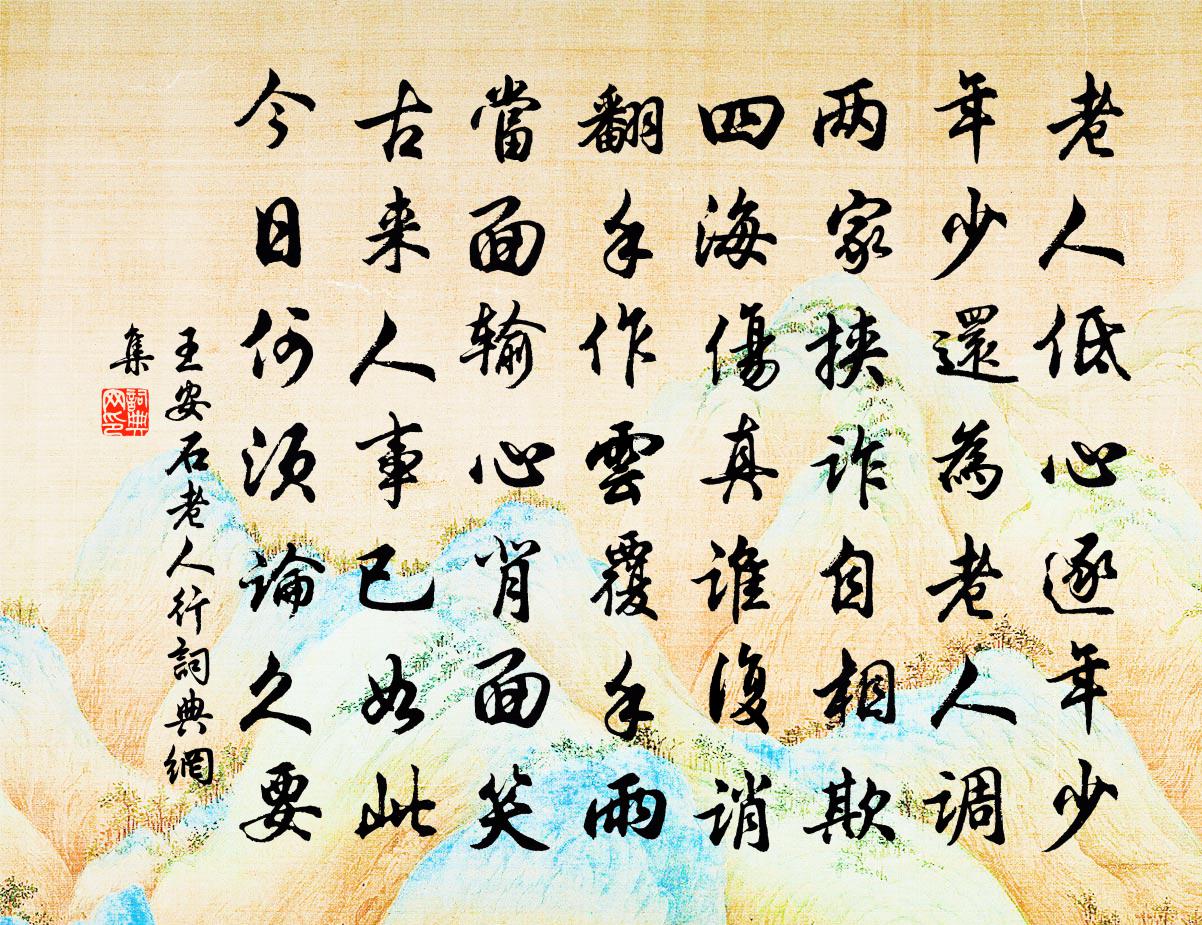 老人低心逐年少
年少還為老人調
两家挟诈自相欺
四海傷真誰復誚
翻手作雲覆手雨
當面输心背面笑
古来人事已如此
今日何须論久要
王安石老人行詞典網
集
詞典网印